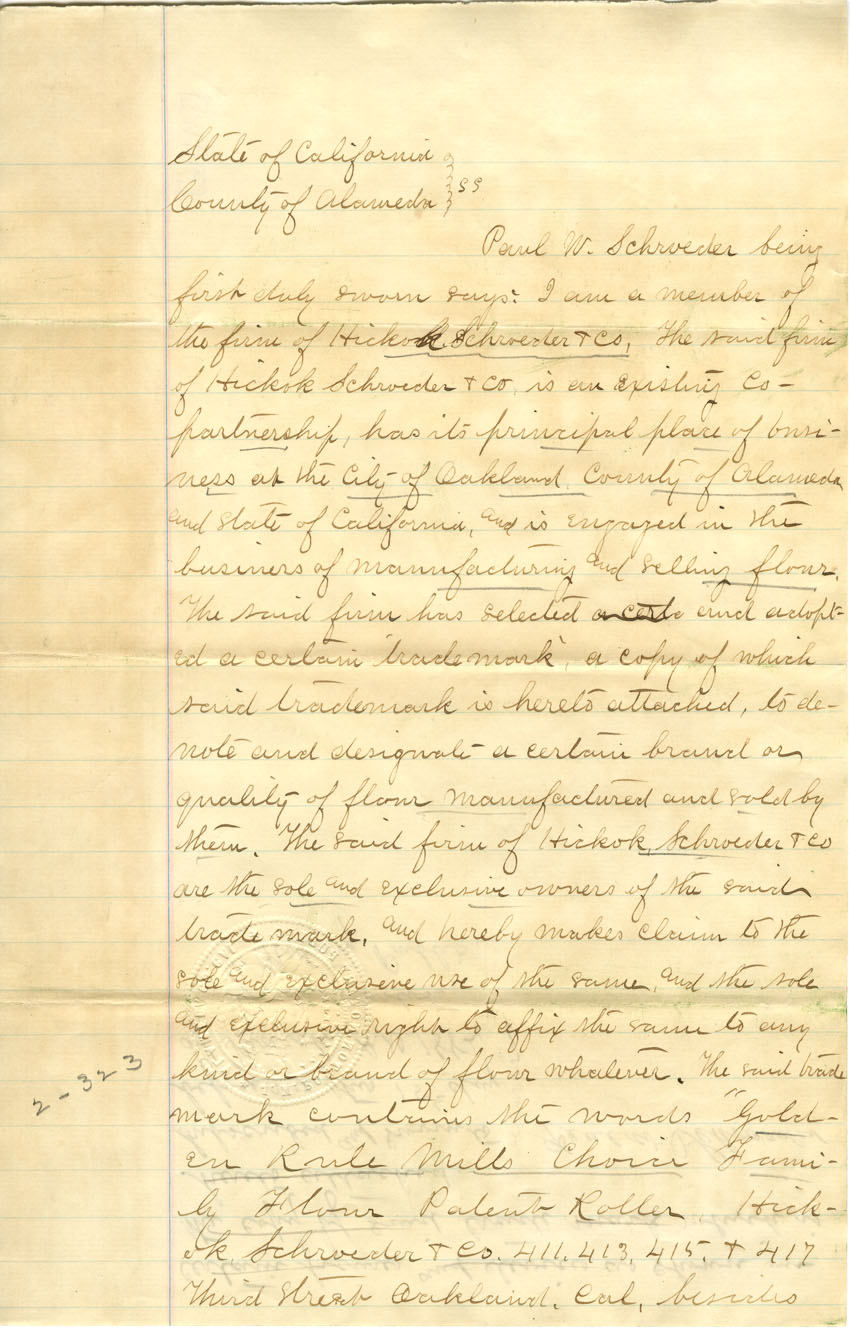 State of California
County of Alameda } ss
Paul W. Schroeder being
first duly sworn says: I am a member of
the firm of Hickok Schroeder & co, The said firm
of Hickok Schroeder & co, is an existing co-
partnership, has its principal place of busi-
ness at the City of Oakland County of Alameda
and State of California, and is engaged in the
business of manufacturing and selling flour.
The said firm has selected a cert and adopt-
ed a certain trademark, a copy of which
said trademark is hereto attached, to de-
note and designate a certain brand or
quality of flour manufactured and sold by
them. The said firm of Hickok, Schroeder & co
are the sole and exclusive owners of the said
trade mark, and hereby makes claim to the
sole and exclusive use of the same, and the sole
and exclusive right to affix the same to any
kind or brand of flour whatever. The said trade
mark contains the words "Gold-
en Rule Mills Choice Fami-
ly Flour Patent Roller, Hick-
ok, Schroeder & Co. 411. 413, 415. & 417
Third Street Oakland. Cal, besides
2-323